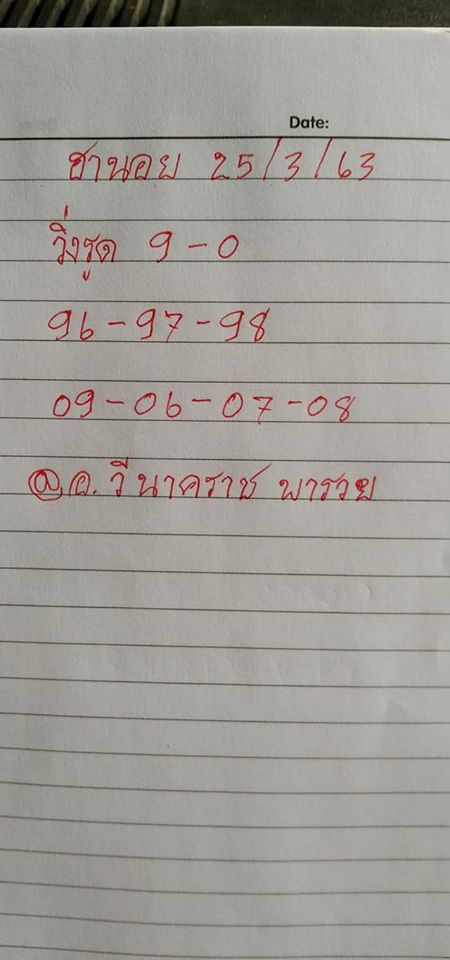 Date:
ฮานอย 25/3/63
วิ่งรูด 9-0
96-97-98
09-06-07-08
@อ.วี นาคราช พารวย